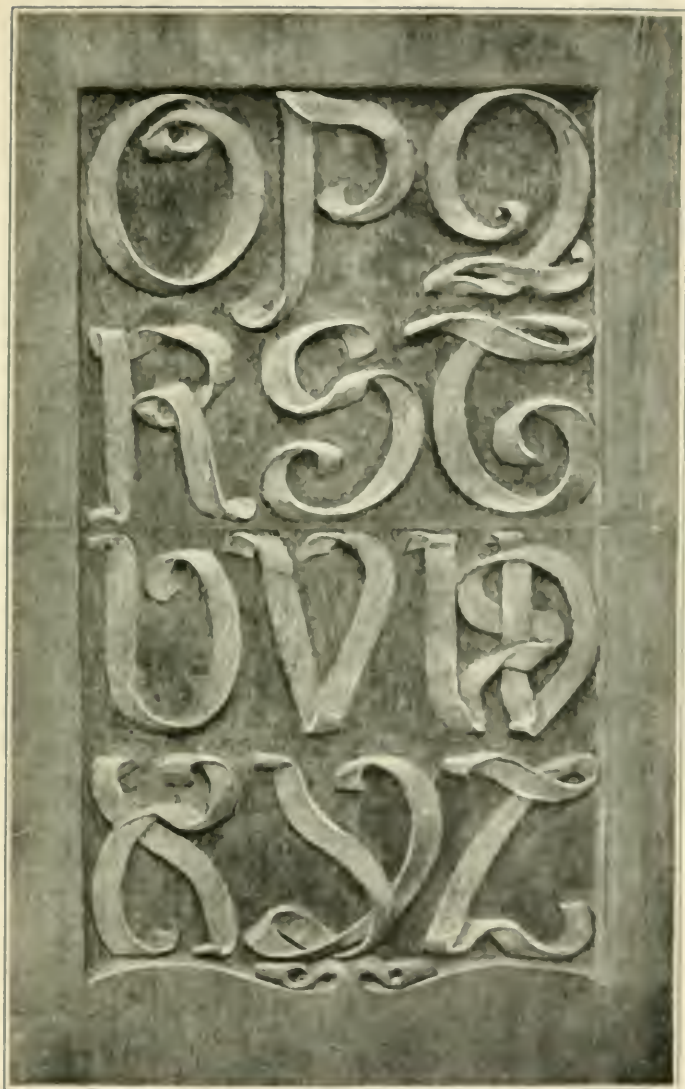 O P Q
R S T
U V W
X Y Z